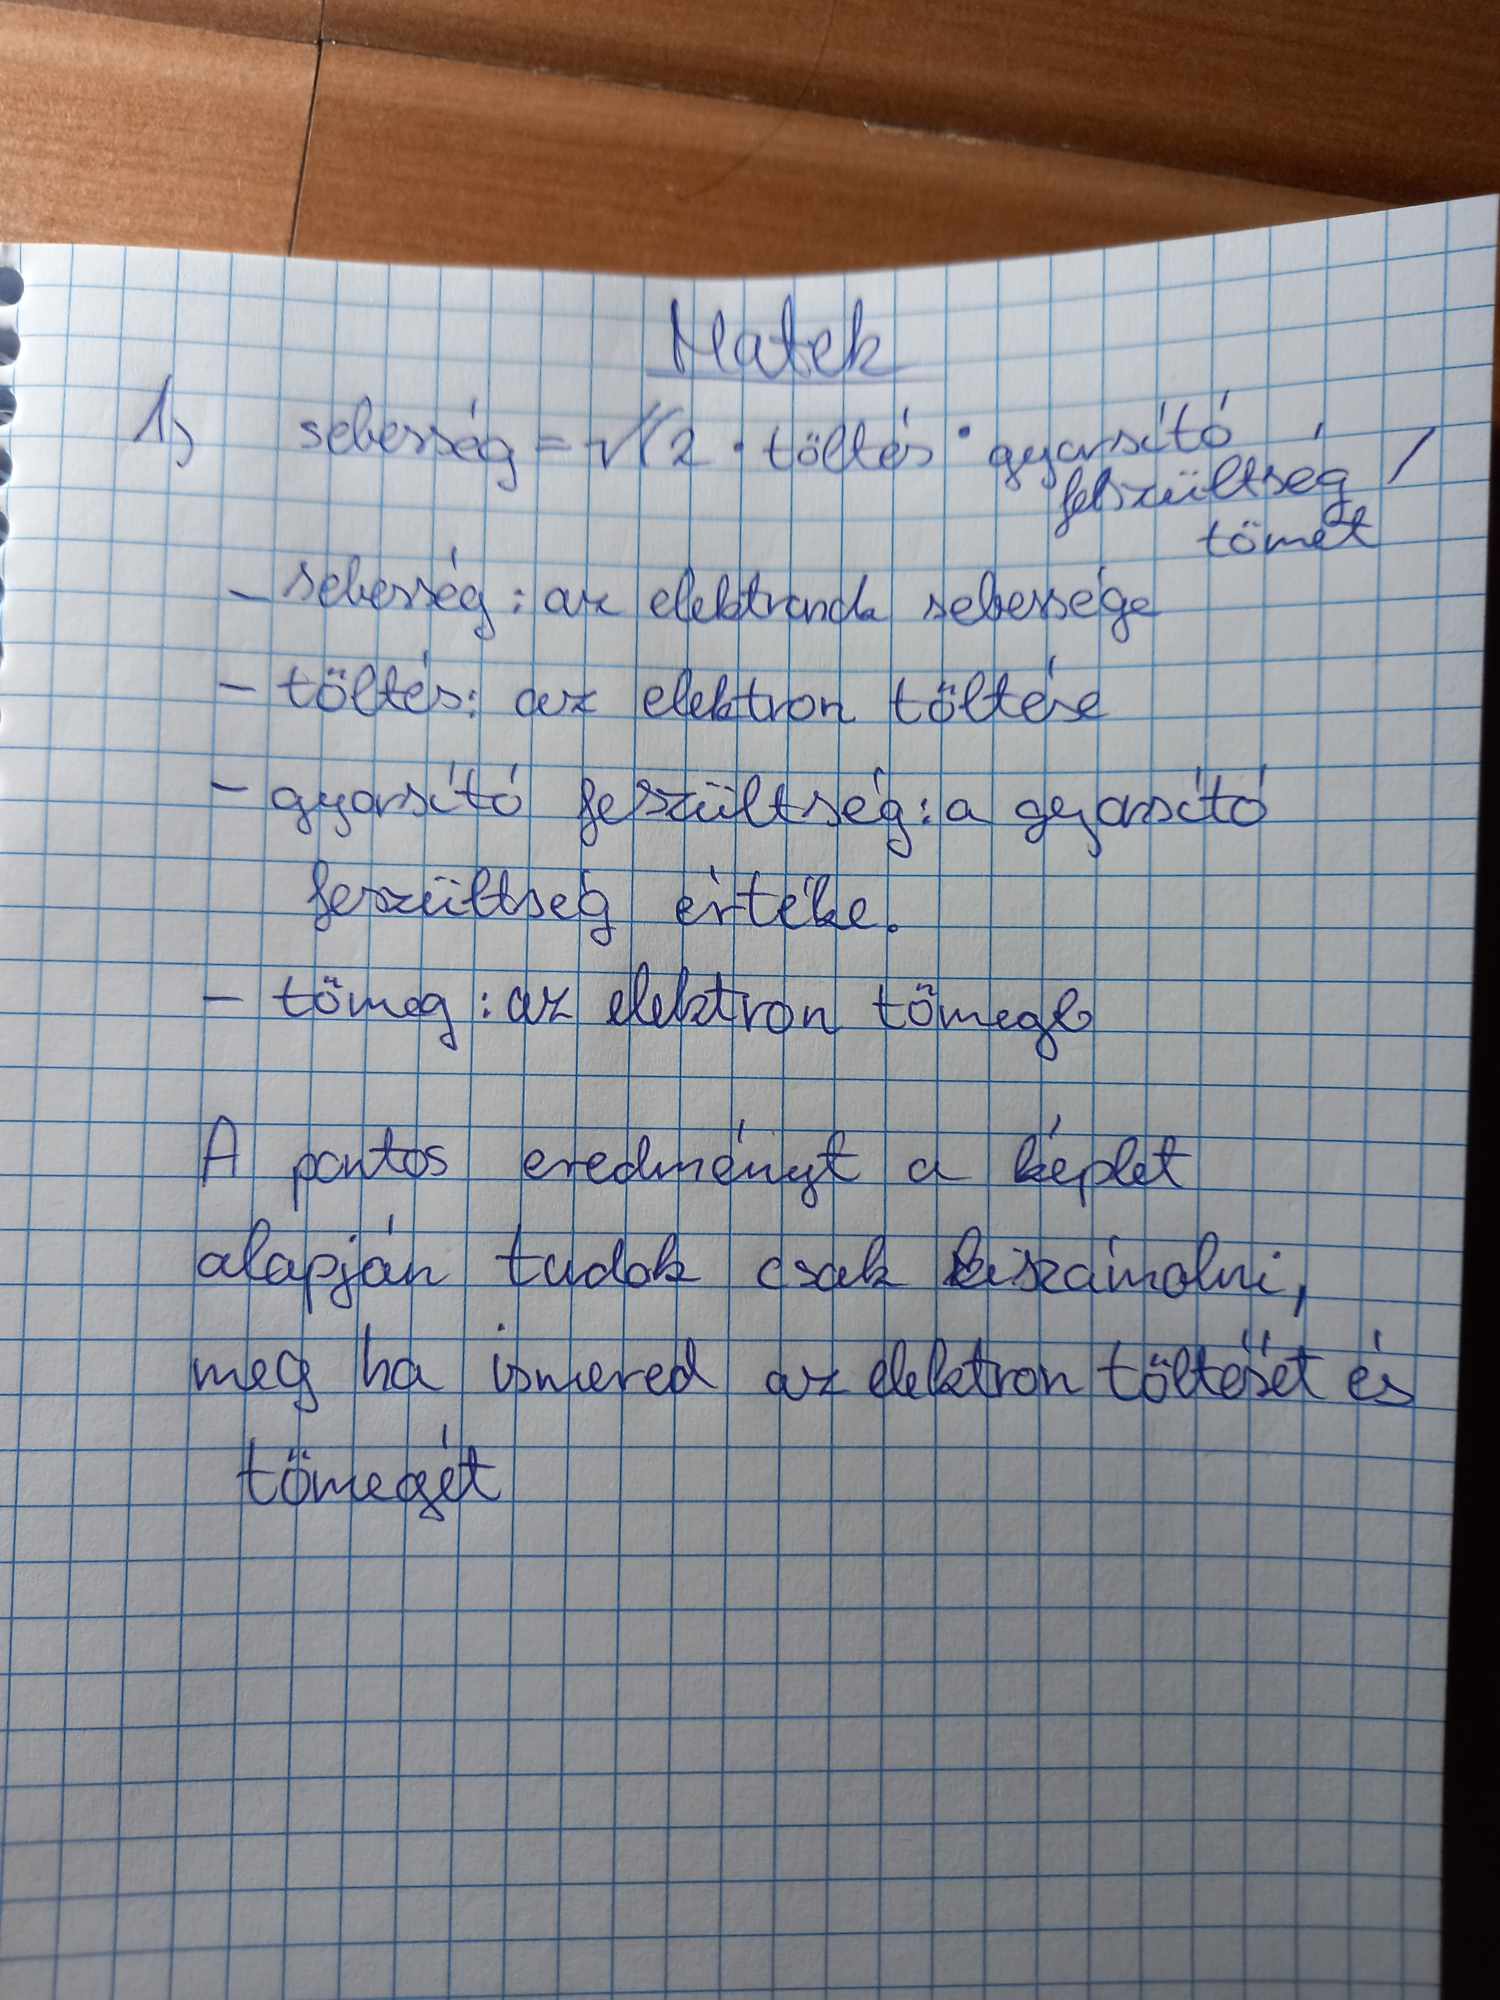 Matek
1, sebesség = √(2 · töltés · gyorsító
feszültség /
tömet
- sebesség: az elektronok sebessége
- töltés: az elektron töltése
- gyorsító feszültség: a gyorsító
feszültség értéke.
- tömeg: az elektron tömege
A pontos eredményt a képlet
alapján tudok csak kiszámolni,
meg ha ismered az elektron töltését és
tömegét